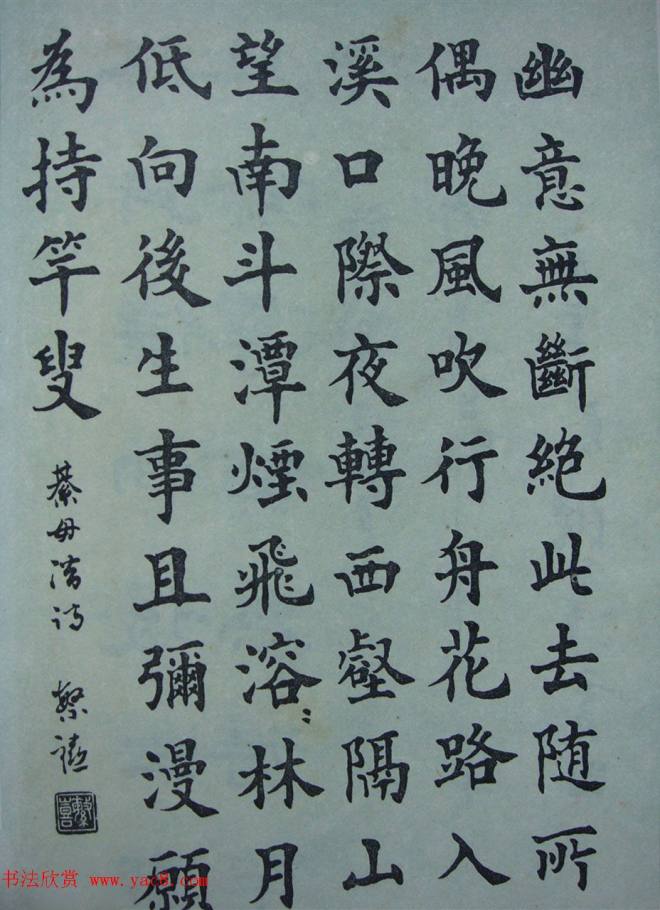 幽意無斷絕此去随所
偶晚風吹行舟花路入
溪口際夜轉西壑隔山
望南斗潭煙飛溶〻林月
低向後生事且彌漫願
為持竿叟
綦毋潜诗
书法欣赏 www.yac8.com